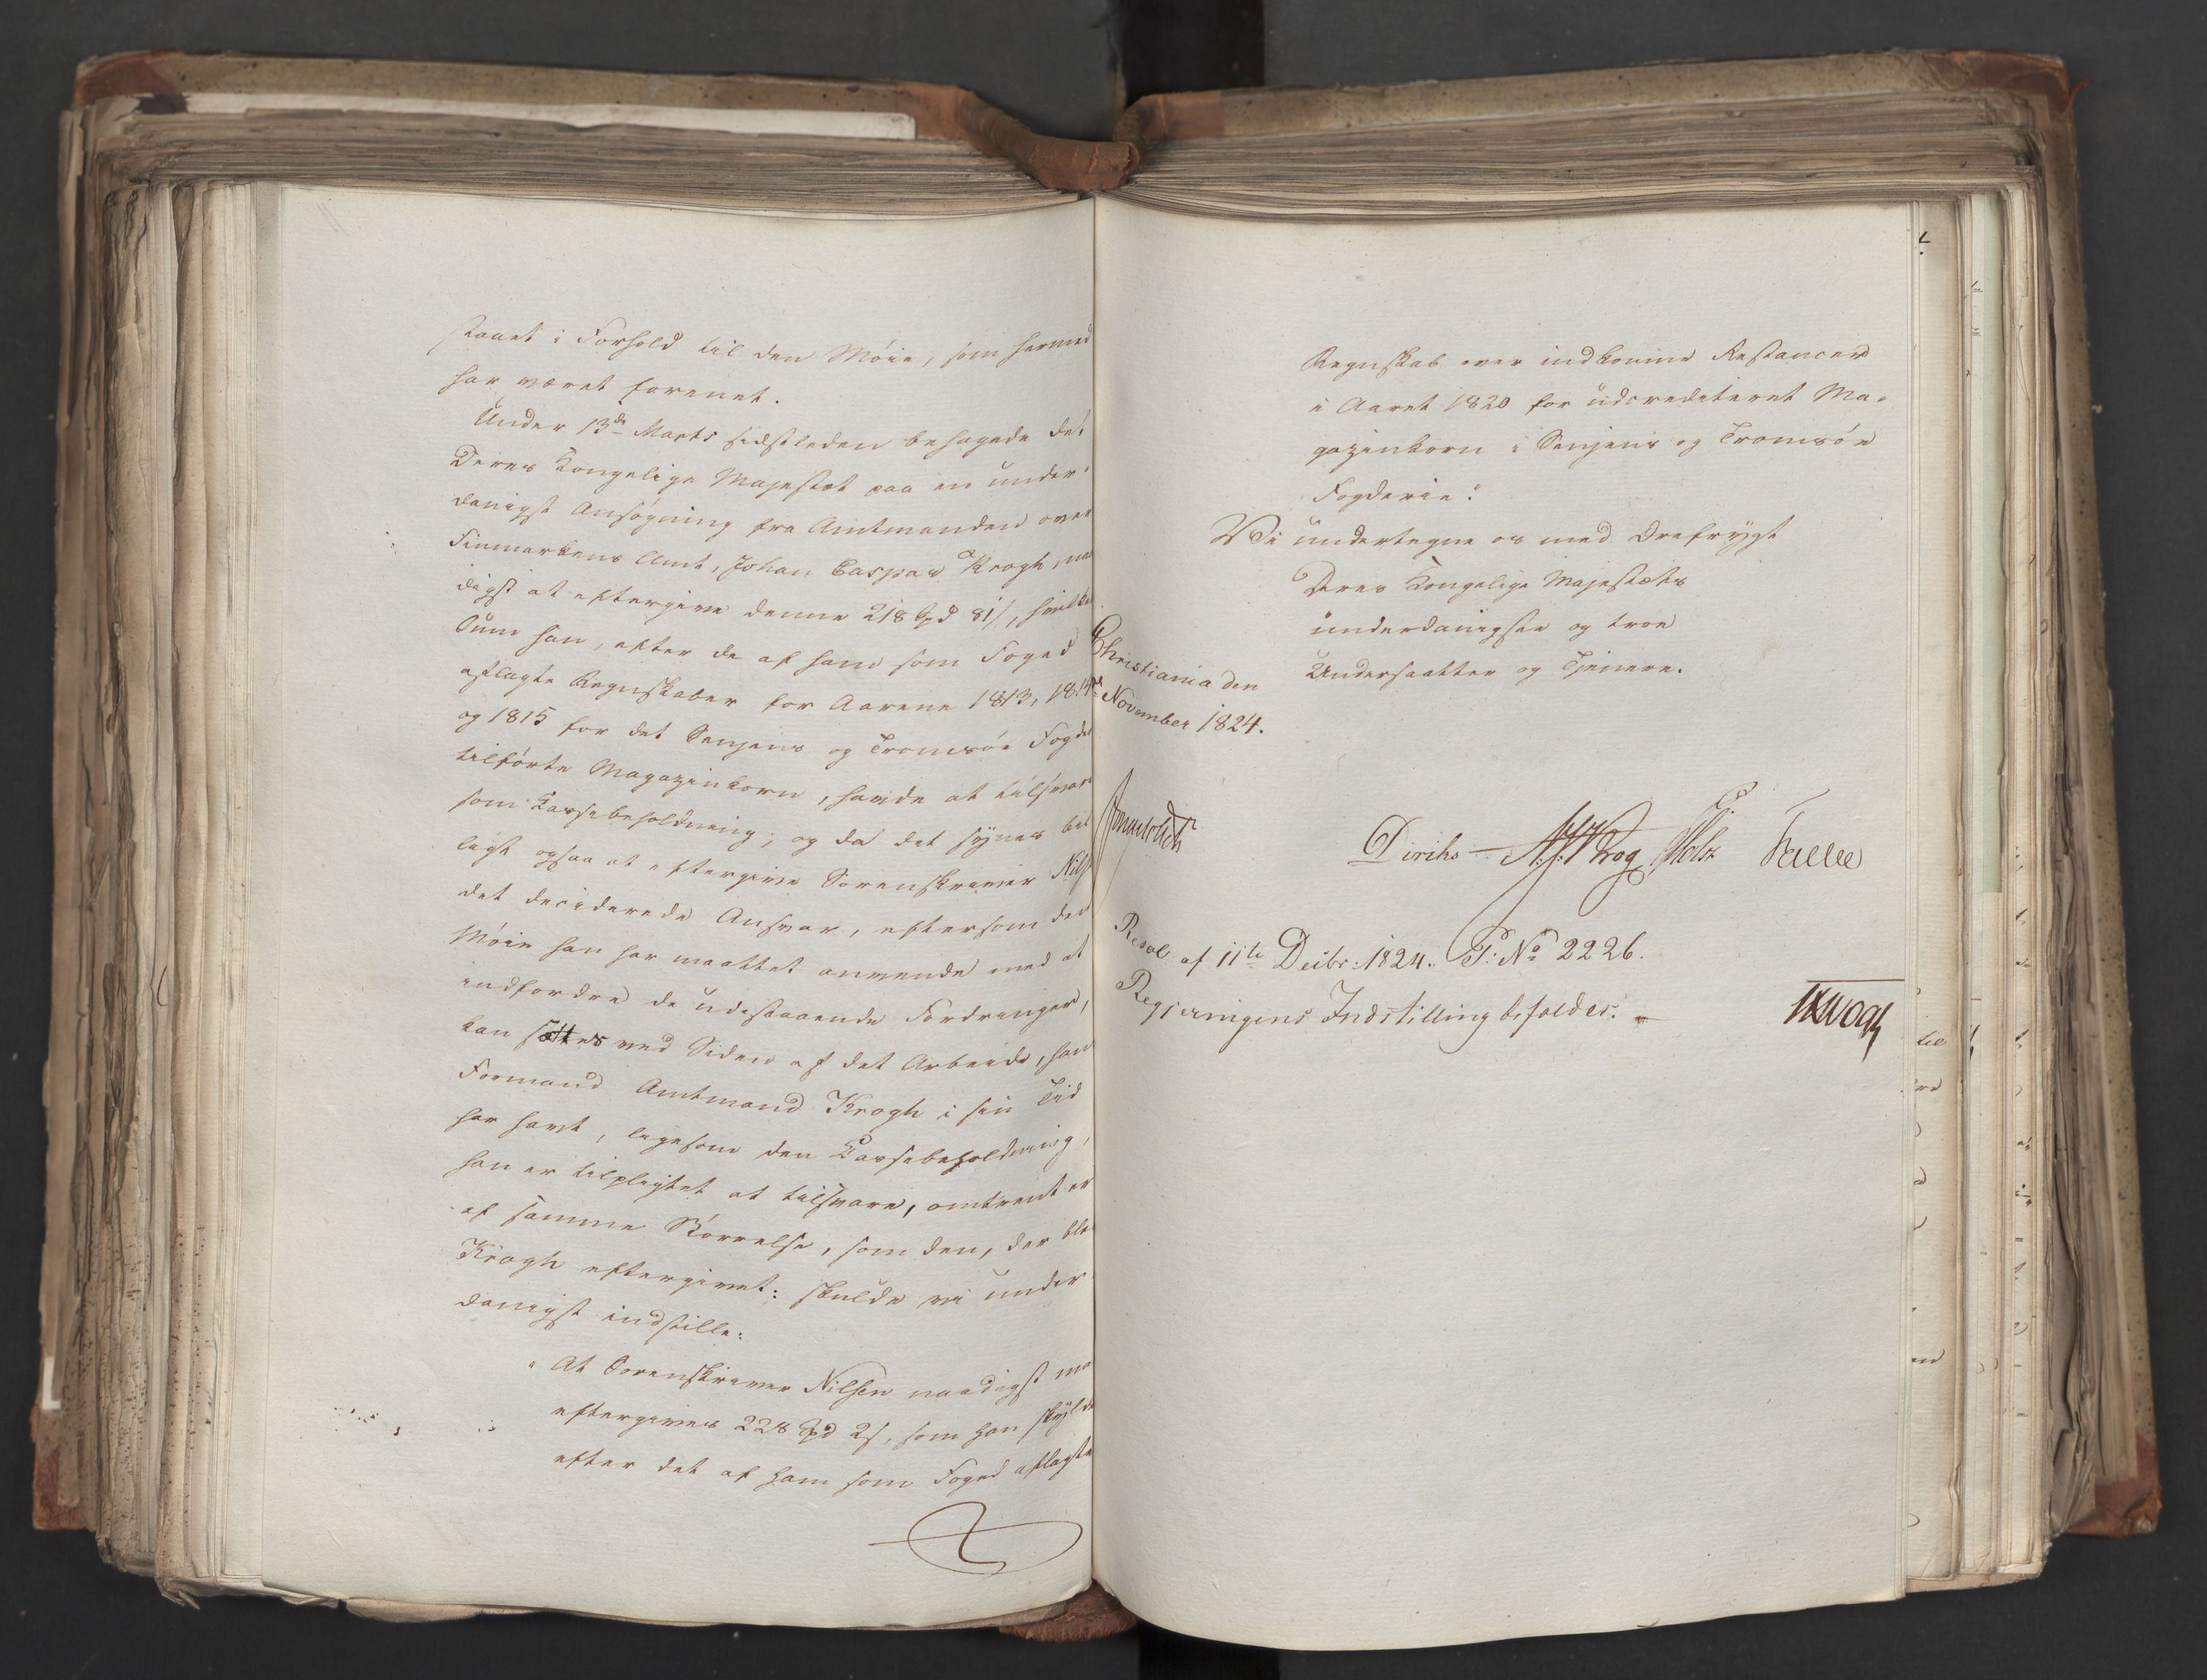 staaet i Forhold til den Möie, som hermed
har været forenet.
Under 13de Marts sidstleden behagede det
Deres Kongelige Majestæt paa en under-
danigst Ansøgning fra Amtmanden over
Finmarkens Amt, Johan Caspar Krogh, naa
digst at eftergive denne 218 Spd 81/, hvilken
Sum han, efter de af ham som Foged
aflagte Regnskaber for Aarene 1813, 1814
og 1815 for det Senjens og Tromsöe Fogde
tilførte Magazinkorn, havde at tilsvare
som Cassebeholdning; og da det synes bil
ligt ogsaa at eftergive Sorenskriver Nils
det deciderede Ansvar, eftersom den
Möie han har maattet anvende med at
indfordre de udestaaende Fordringer,
kan sættes ved Siden af det Arbeide, hans
Formand Amtmand Krogh i sin Tid
har havt, ligesom den Cassebeholdning,
han er tilpligtet at tilsvare, omtrent er
af samme Størrelse, som den, der blev
Krogh eftergivet: skulde vi under
danigst indstille:
"At Sorenskriver Nilsen naadigst maa
eftergives 228 Spd 2/, som han skylder
efter det af ham som Foged aflagte
Regnskab over indkomne Restancer
i Aaret 1820 for udcrediteret Ma-
gazinkorn i Senjens og Tromsöe
Fogderie."
Vi undertegne os med Ærefrygt
Deres Kongelige Majestæts
underdanigste og troe
Undersaatter og Tjenere.
Christiania den
November 1824.
Diriks A. J. Krog Holst Fasting
Resol. af 11te Decbr: 1824. P: No 2226.
Regjeringens Indstilling bifaldes.
Krogh